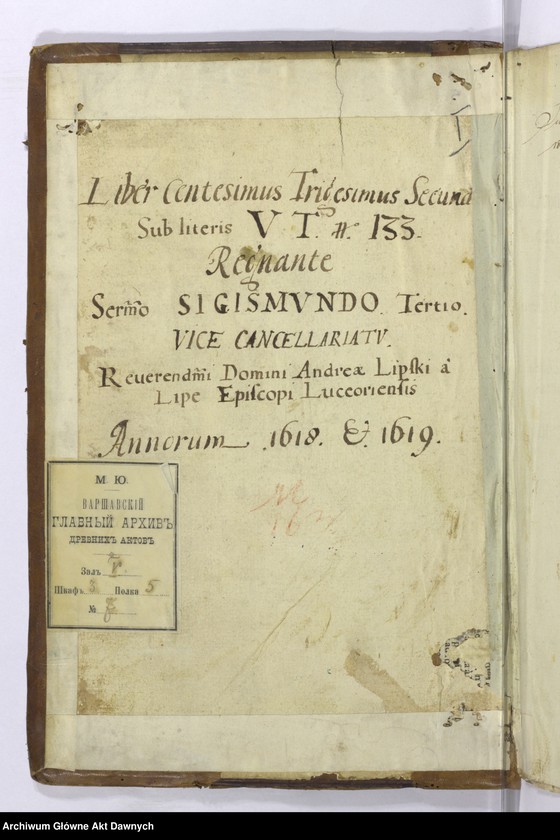 Liber Centesimus Trigesimus Secund
Sub literis V T. #. 133.
Regnante
Serm̃o SIGISMVNDO. Tertio.
VICE CANCELLARIATV.
Reverendm̃i Domini Andreæ Lipſki á
Lipe Epiſcopi Luceorienſis
Annorum 1618. &. 1619.
М. Ю.
ВАРШАВСКІЙ
ГЛАВНЫЙ АРХИВЪ
ДРЕВНИХЪ АКТОВЪ
Залъ V
Шкафъ 3 Полка 5
№
Archiwum Główne Akt Dawnych